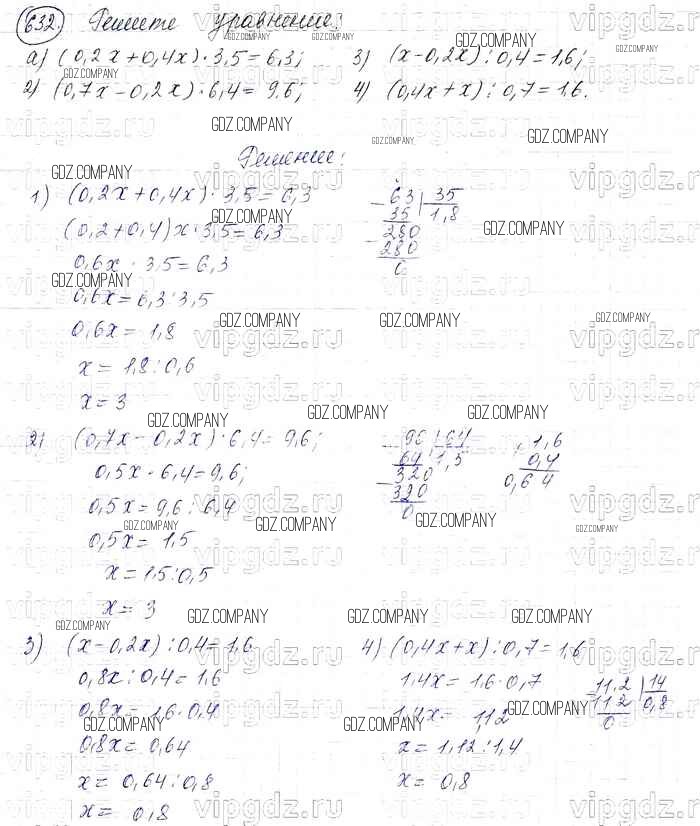 632. Решите уравнение:
а) (0,2x+0,4x)·3,5=6,3; 3) (x-0,2x):0,4=1,6;
2) (0,7x-0,2x)·6,4=9,6; 4) (0,4x+x):0,7=1,6.
Решение:
1) (0,2x+0,4x)·3,5=6,3
(0,2+0,4)x·3,5=6,3
0,6x·3,5=6,3
0,6x=6,3:3,5
0,6x=1,8
x=1,8:0,6
x=3
63 | 35
35 | 1,8
280
280
0
2) (0,7x-0,2x)·6,4=9,6;
0,5x·6,4=9,6;
0,5x=9,6:6,4
0,5x=1,5
x=1,5:0,5
x=3
96 | 64
64 | 1,5
320
320
0
1,6
0,4
0,64
3) (x-0,2x):0,4=1,6
0,8x:0,4=1,6
0,8x=1,6·0,4
0,8x=0,64
x=0,64:0,8
x=0,8
4) (0,4x+x):0,7=1,6
1,4x=1,6·0,7
1,4x=1,12
x=1,12:1,4
x=0,8
11,2 | 14
112 | 0,8
0
GDZ.COMPANY
vipgdz.ru